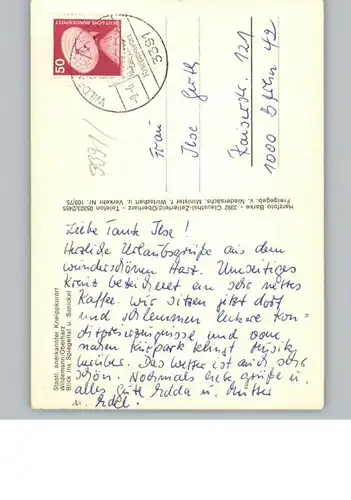 50
DEUTSCHE BUNDESPOST
3391
3391/1
Frau
Ilse Guth
Kaiserstr. 121
1000 Berlin 42
Harzfoto Barke – 3392 Clausthal-Zellerfeld/Oberharz – Telefon 05323/2455
Freigegeb. v. Niedersächs. Minister f. Wirtschaft u. Verkehr Nr. 103/75
Staatl. anerkannter Kneippkurort
Wildemann/Oberharz
Blick ins Spiegeltal u.
Liebe Tante Ilse!
Herzliche Urlaubsgrüße aus dem
wunderschönen Harz. Umseitiges
Kreuz bezeichnet ein sehr nettes
Kaffee. Wir sitzen jetzt dort
und schlemmen leckere Kon-
ditorerzeugnisse und vom
nahen Kurpark klingt Musik
herüber. Das Wetter ist auch sehr
schön. Nochmals liebe Grüße u.
alles Gute Edda u. Mutter
u.